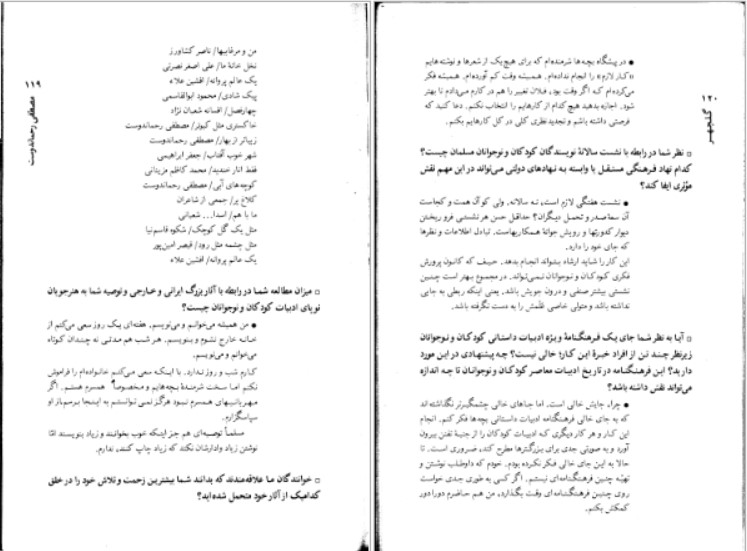 ۱۱۹
مصطفی رحماندوست
من و مرغابیها/ ناصر کشاورز
نخل خانهٔ ما/ علی اصغر نصرتی
یک عالم پروانه/ افشین علاء
پیک شادی/ محمود ابوالقاسمی
چهارفصل/ افسانه شعبان نژاد
خاکستری مثل کبوتر/ مصطفی رحماندوست
زیباتر از بهار/ مصطفی رحماندوست
شهر خوب آفتاب/ جعفر ابراهیمی
فقط انار خندید/ محمد کاظم مزینانی
کوچه‌های آبی/ مصطفی رحماندوست
کلاغ پر/ جمعی از شاعران
ما با هم/ اسدا... شعبانی
مثل یک گل کوچک/ شکوه قاسم‌نیا
مثل چشمه مثل رود/ قیصر امین‌پور
یک عالم پروانه/ افشین علاء
▫ میزان مطالعه شما در رابطه با آثار بزرگ ایرانی و خارجی و توصیه شما به هنرجویان
نوپای ادبیات کودکان و نوجوانان چیست؟
● من همیشه می‌خوانم و می‌نویسم. هفته‌ای یک روز سعی می‌کنم از
خانه خارج نشوم و بنویسم. هر شب هم مدتی نه چندان کوتاه
می‌خوانم و می‌نویسم.
کارم شب و روز ندارد. با اینکه سعی می‌کنم خانواده‌ام را فراموش
نکنم اما سخت شرمندهٔ بچه‌هایم و مخصوصاً همسرم هستم. اگر
مهربانیهای همسرم نبود هرگز نمی‌توانستم به اینجا برسم. از او
سپاسگزارم.
مسلماً توصیه‌ای هم جز اینکه خوب بخوانند و زیاد بنویسند امّا
نوشتن زیاد وادارشان نکند که زیاد چاپ کنند، ندارم.
▫ خوانندگان ما علاقه‌مندند که بدانند شما بیشترین زحمت و تلاش خود را در خلق
کدامیک از آثار خود متحمل شده‌اید؟
۱۲۰
گلچهر
● در پیشگاه بچه‌ها شرمنده‌ام که برای هیچ یک از شعرها و نوشته‌هایم
«کار لازم» را انجام نداده‌ام. همیشه وقت کم آورده‌ام. همیشه فکر
می‌کرده‌ام که اگر وقت بود، فلان تغییر را هم در کارم می‌دادم تا بهتر
شود. اجازه بدهید هیچ کدام از کارهایم را انتخاب نکنم. دعا کنید که
فرصتی داشته باشم و تجدیدنظری کلی در کل کارهایم بکنم.
▫ نظر شما در رابطه با نشست سالانهٔ نویسندگان کودکان و نوجوانان مسلمان چیست؟
کدام نهاد فرهنگی مستقل یا وابسته به نهادهای دولتی می‌تواند در این مهم نقش
مؤثری ایفا کند؟
● نشست هفتگی لازم است، نه سالانه. ولی کو آن همت و کجاست
آن سعهٔ صدر و تحمل دیگران؟ حداقل حسن هر نشستی فرو ریختن
دیوار کدورتها و رویش جوانهٔ همکاریهاست. تبادل اطلاعات و نظرها
که جای خود را دارد.
این کار را شاید ارشاد بتواند انجام بدهد. حیف که کانون پرورش
فکری کودکان و نوجوانان نمی‌تواند. در مجموع بهتر است چنین
نشستی بیشتر صنفی و درون جویش باشد. یعنی اینکه ربطی به جایی
نداشته باشد و متولی خاصی علمش را به دست نگرفته باشد.
▫ آیا به نظر شما جای یک فرهنگنامهٔ ویژه ادبیات داستانی کودکان و نوجوانان
زیرنظر چند تن از افراد خبرهٔ این کار، خالی نیست؟ چه پیشنهادی در این مورد
دارید؟ این فرهنگنامه در تاریخ ادبیات معاصر کودکان و نوجوانان تا چه اندازه
می‌تواند نقش داشته باشد؟
● چرا، جایش خالی است. اما جاهای خالی چشمگیرتر نگذاشته‌اند
که به جای خالی فرهنگنامه ادبیات داستانی بچه‌ها فکر کنم. انجام
این کار و هر کار دیگری که ادبیات کودکان را از جنبهٔ تفنن بیرون
آورد و به صورتی جدی برای بزرگترها مطرح کند، ضروری است. تا
حالا به این جای خالی فکر نکرده بودم. خودم که داوطلب نوشتن و
تهیّه چنین فرهنگنامه‌ای نیستم. اگر کسی به طوری جدی خواست
روی چنین فرهنگنامه‌ای وقت بگذارد، من هم حاضرم دورادور
کمکش بکنم.